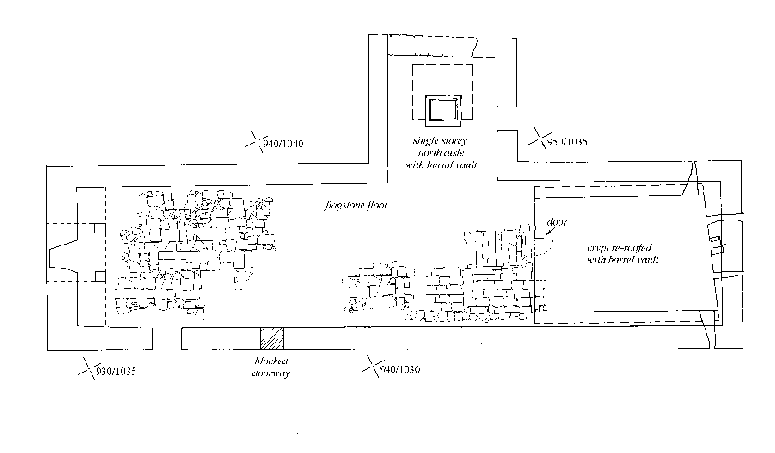 940/1040
single storey
north aisle
with barrel vault
flagstone floor
door
crypt re-roofed
with barrel vault
blocked
doorway
930/1035
940/1030